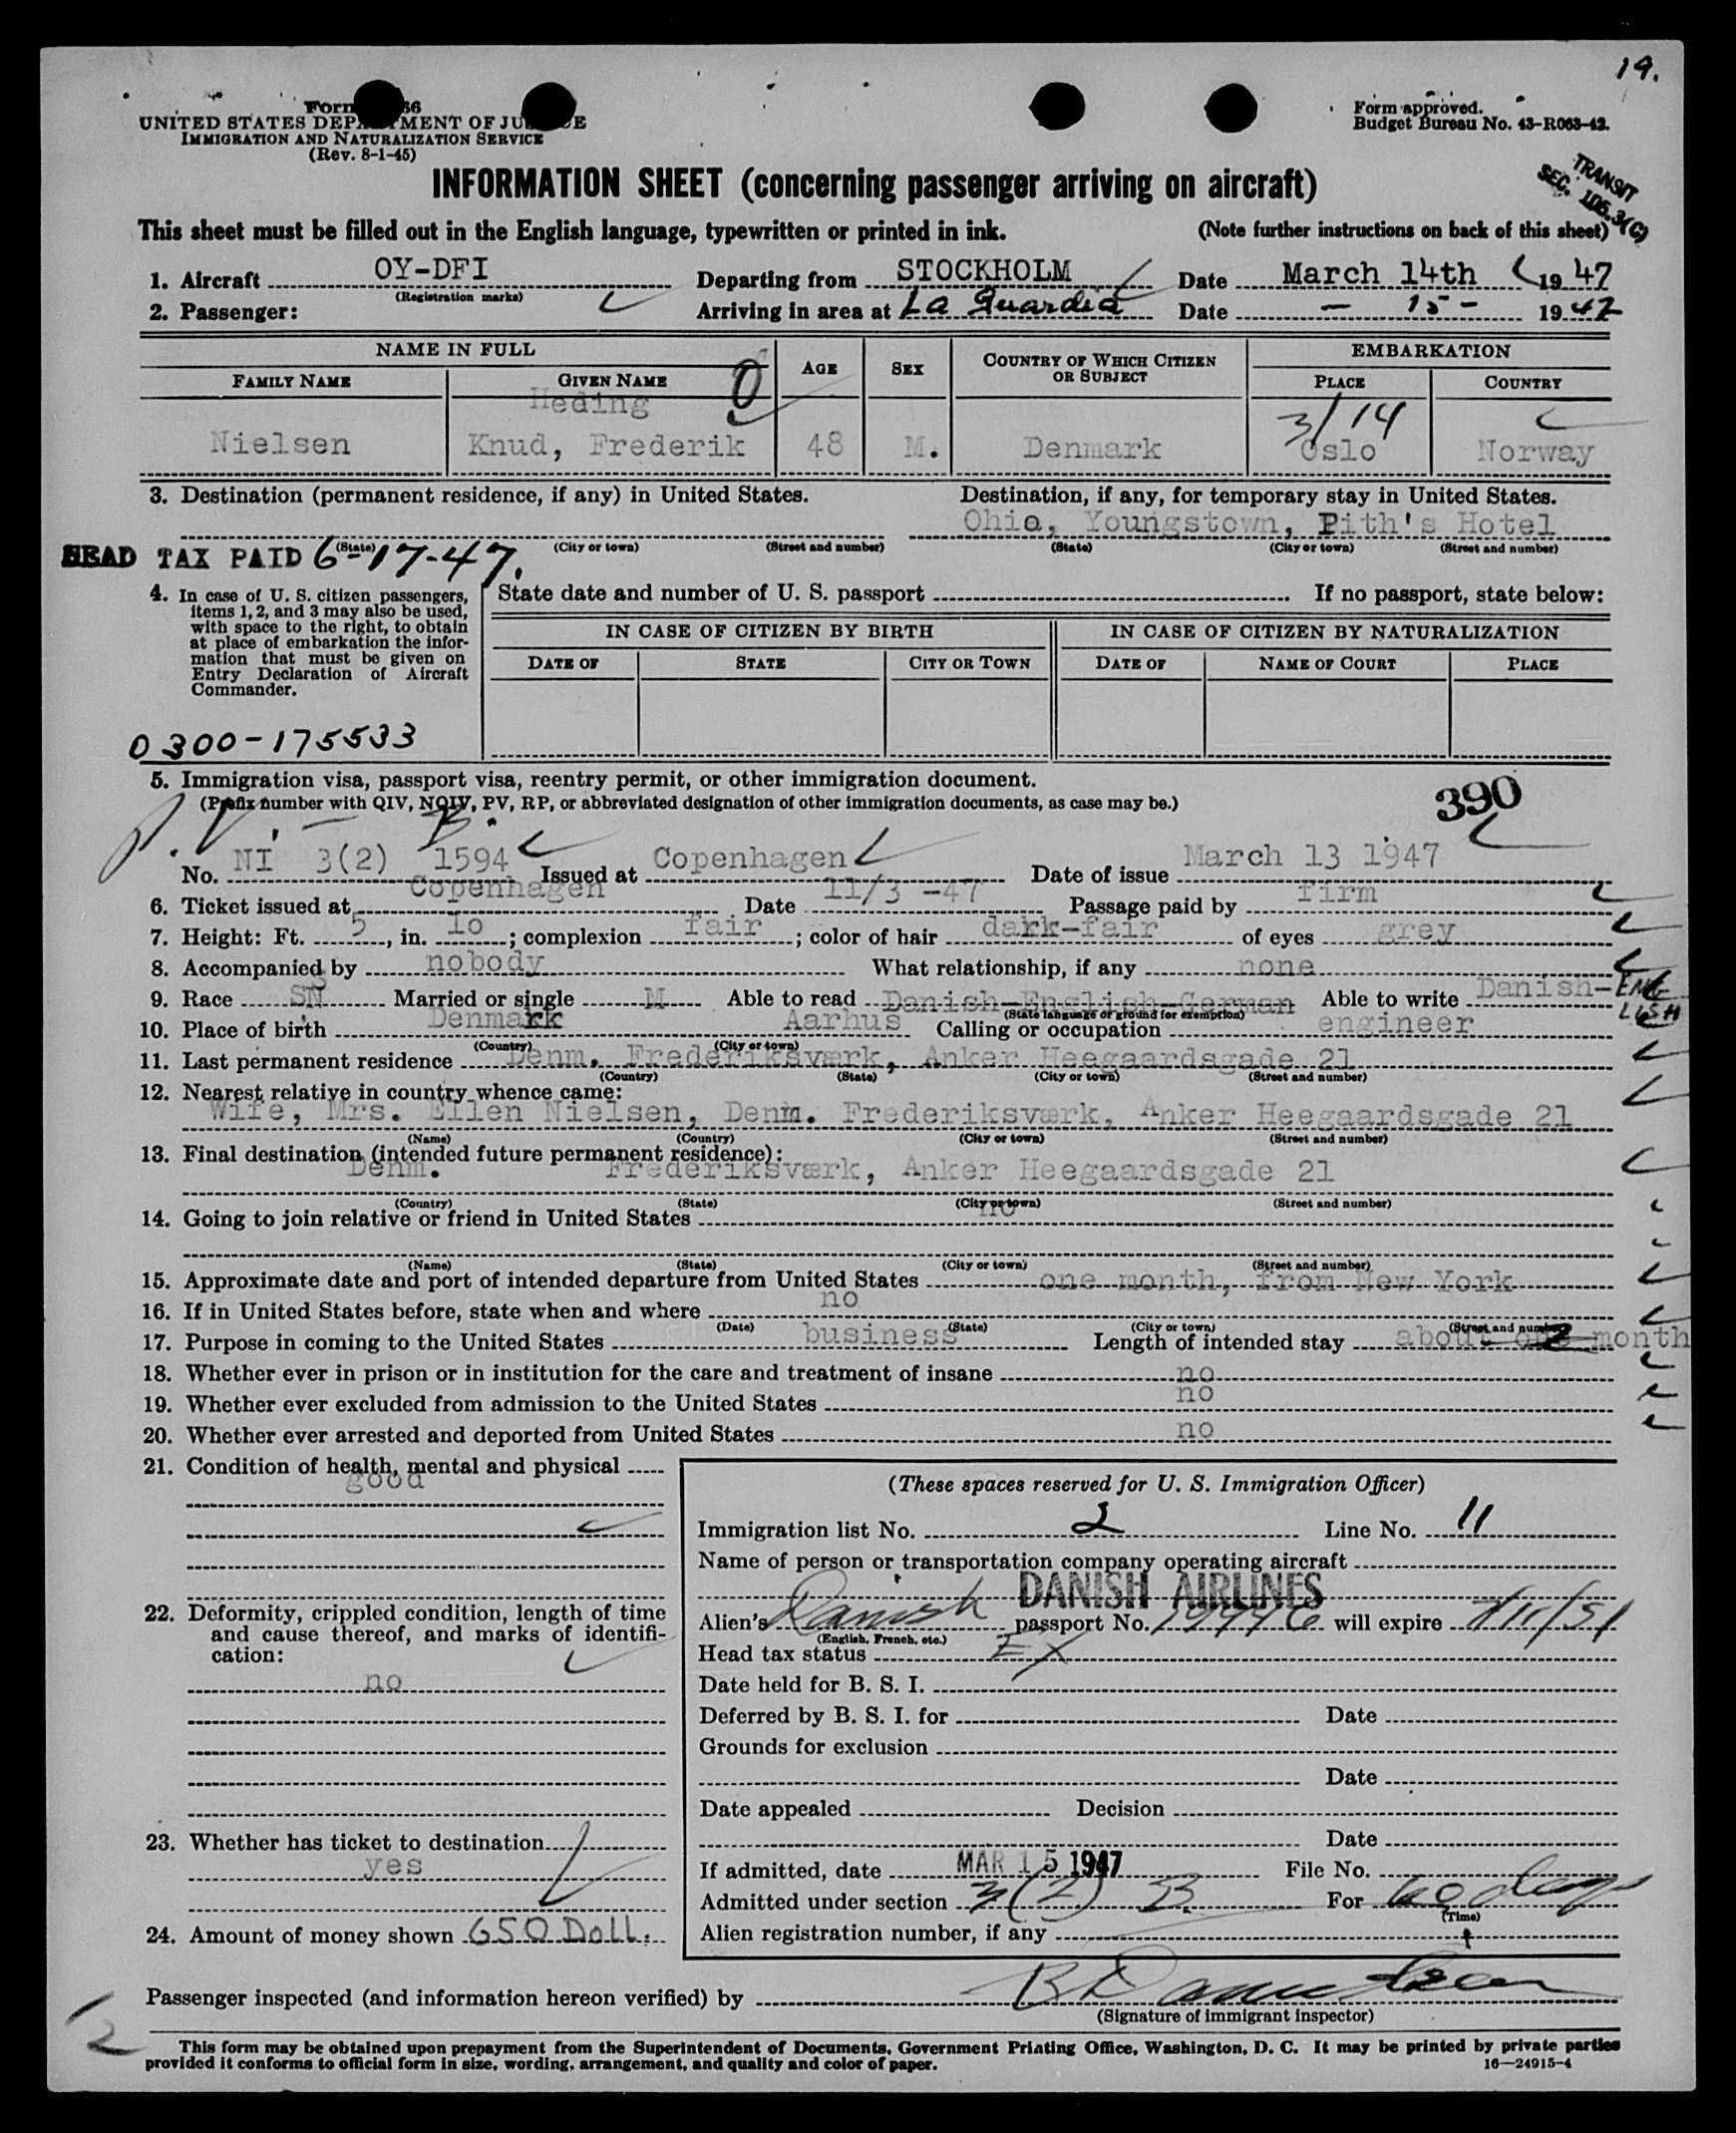 19.
Form 66
UNITED STATES DEPARTMENT OF JUSTICE
IMMIGRATION AND NATURALIZATION SERVICE
(Rev. 8-1-45)
Form approved.
Budget Bureau No. 43-R063-42.
TRANSIT
SEC. 106.3(C)
INFORMATION SHEET (concerning passenger arriving on aircraft)
This sheet must be filled out in the English language, typewritten or printed in ink. (Note further instructions on back of this sheet)
1. Aircraft OY-DFI Departing from STOCKHOLM Date March 14th 1947
(Registration marks)
2. Passenger: Arriving in area at La Guardia Date - 15 - 1947
NAME IN FULL AGE SEX COUNTRY OF WHICH CITIZEN OR SUBJECT EMBARKATION
FAMILY NAME GIVEN NAME PLACE COUNTRY
Heding 0 3/14
Nielsen Knud, Frederik 48 M. Denmark Oslo Norway
3. Destination (permanent residence, if any) in United States. Destination, if any, for temporary stay in United States.
Ohio, Youngstown, Pith's Hotel
(State) (City or town) (Street and number) (State) (City or town) (Street and number)
HEAD TAX PAID 6-17-47.
4. In case of U. S. citizen passengers, items 1, 2, and 3 may also be used, with space to the right, to obtain at place of embarkation the information that must be given on Entry Declaration of Aircraft Commander.
State date and number of U. S. passport If no passport, state below:
IN CASE OF CITIZEN BY BIRTH IN CASE OF CITIZEN BY NATURALIZATION
DATE OF STATE CITY OR TOWN DATE OF NAME OF COURT PLACE
0300-175533
5. Immigration visa, passport visa, reentry permit, or other immigration document.
(Prefix number with QIV, NQIV, PV, RP, or abbreviated designation of other immigration documents, as case may be.)
390
P.V. - B.
No. NI 3(2) 1594 Issued at Copenhagen Date of issue March 13 1947
6. Ticket issued at Copenhagen Date 11/3 -47 Passage paid by firm
7. Height: Ft. 5, in. 10; complexion fair; color of hair dark-fair of eyes grey
8. Accompanied by nobody What relationship, if any none
9. Race SN Married or single M Able to read Danish-English-German Able to write Danish-ENGLISH
(State language or ground for exemption)
10. Place of birth Denmark Aarhus Calling or occupation engineer
(Country) (City or town)
11. Last permanent residence Denm. Frederiksværk, Anker Heegaardsgade 21
(Country) (State) (City or town) (Street and number)
12. Nearest relative in country whence came:
Wife, Mrs. Ellen Nielsen, Denm. Frederiksværk, Anker Heegaardsgade 21
(Name) (Country) (City or town) (Street and number)
13. Final destination (intended future permanent residence):
Denm. Frederiksværk, Anker Heegaardsgade 21
(Country) (State) (City or town) (Street and number)
14. Going to join relative or friend in United States no
(Name) (State) (City or town) (Street and number)
15. Approximate date and port of intended departure from United States one month, from New York
16. If in United States before, state when and where no
(Date) (State) (City or town) (Street and number)
17. Purpose in coming to the United States business Length of intended stay about one 2 month
18. Whether ever in prison or in institution for the care and treatment of insane no
19. Whether ever excluded from admission to the United States no
20. Whether ever arrested and deported from United States no
21. Condition of health, mental and physical
good
22. Deformity, crippled condition, length of time and cause thereof, and marks of identification:
no
23. Whether has ticket to destination
yes
24. Amount of money shown 650 Doll.
(These spaces reserved for U. S. Immigration Officer)
Immigration list No. 2 Line No. 11
Name of person or transportation company operating aircraft
DANISH AIRLINES
Alien's Danish passport No. 19446 will expire 7/11/51
(English, French, etc.)
Head tax status EX
Date held for B. S. I.
Deferred by B. S. I. for Date
Grounds for exclusion
Date
Date appealed Decision
Date
If admitted, date MAR 15 1947 File No.
Admitted under section 3(2) B. For 60 days
(Time)
Alien registration number, if any
Passenger inspected (and information hereon verified) by
(Signature of immigrant inspector)
12
This form may be obtained upon prepayment from the Superintendent of Documents, Government Printing Office, Washington, D. C. It may be printed by private parties
provided it conforms to official form in size, wording, arrangement, and quality and color of paper. 16—24915-4